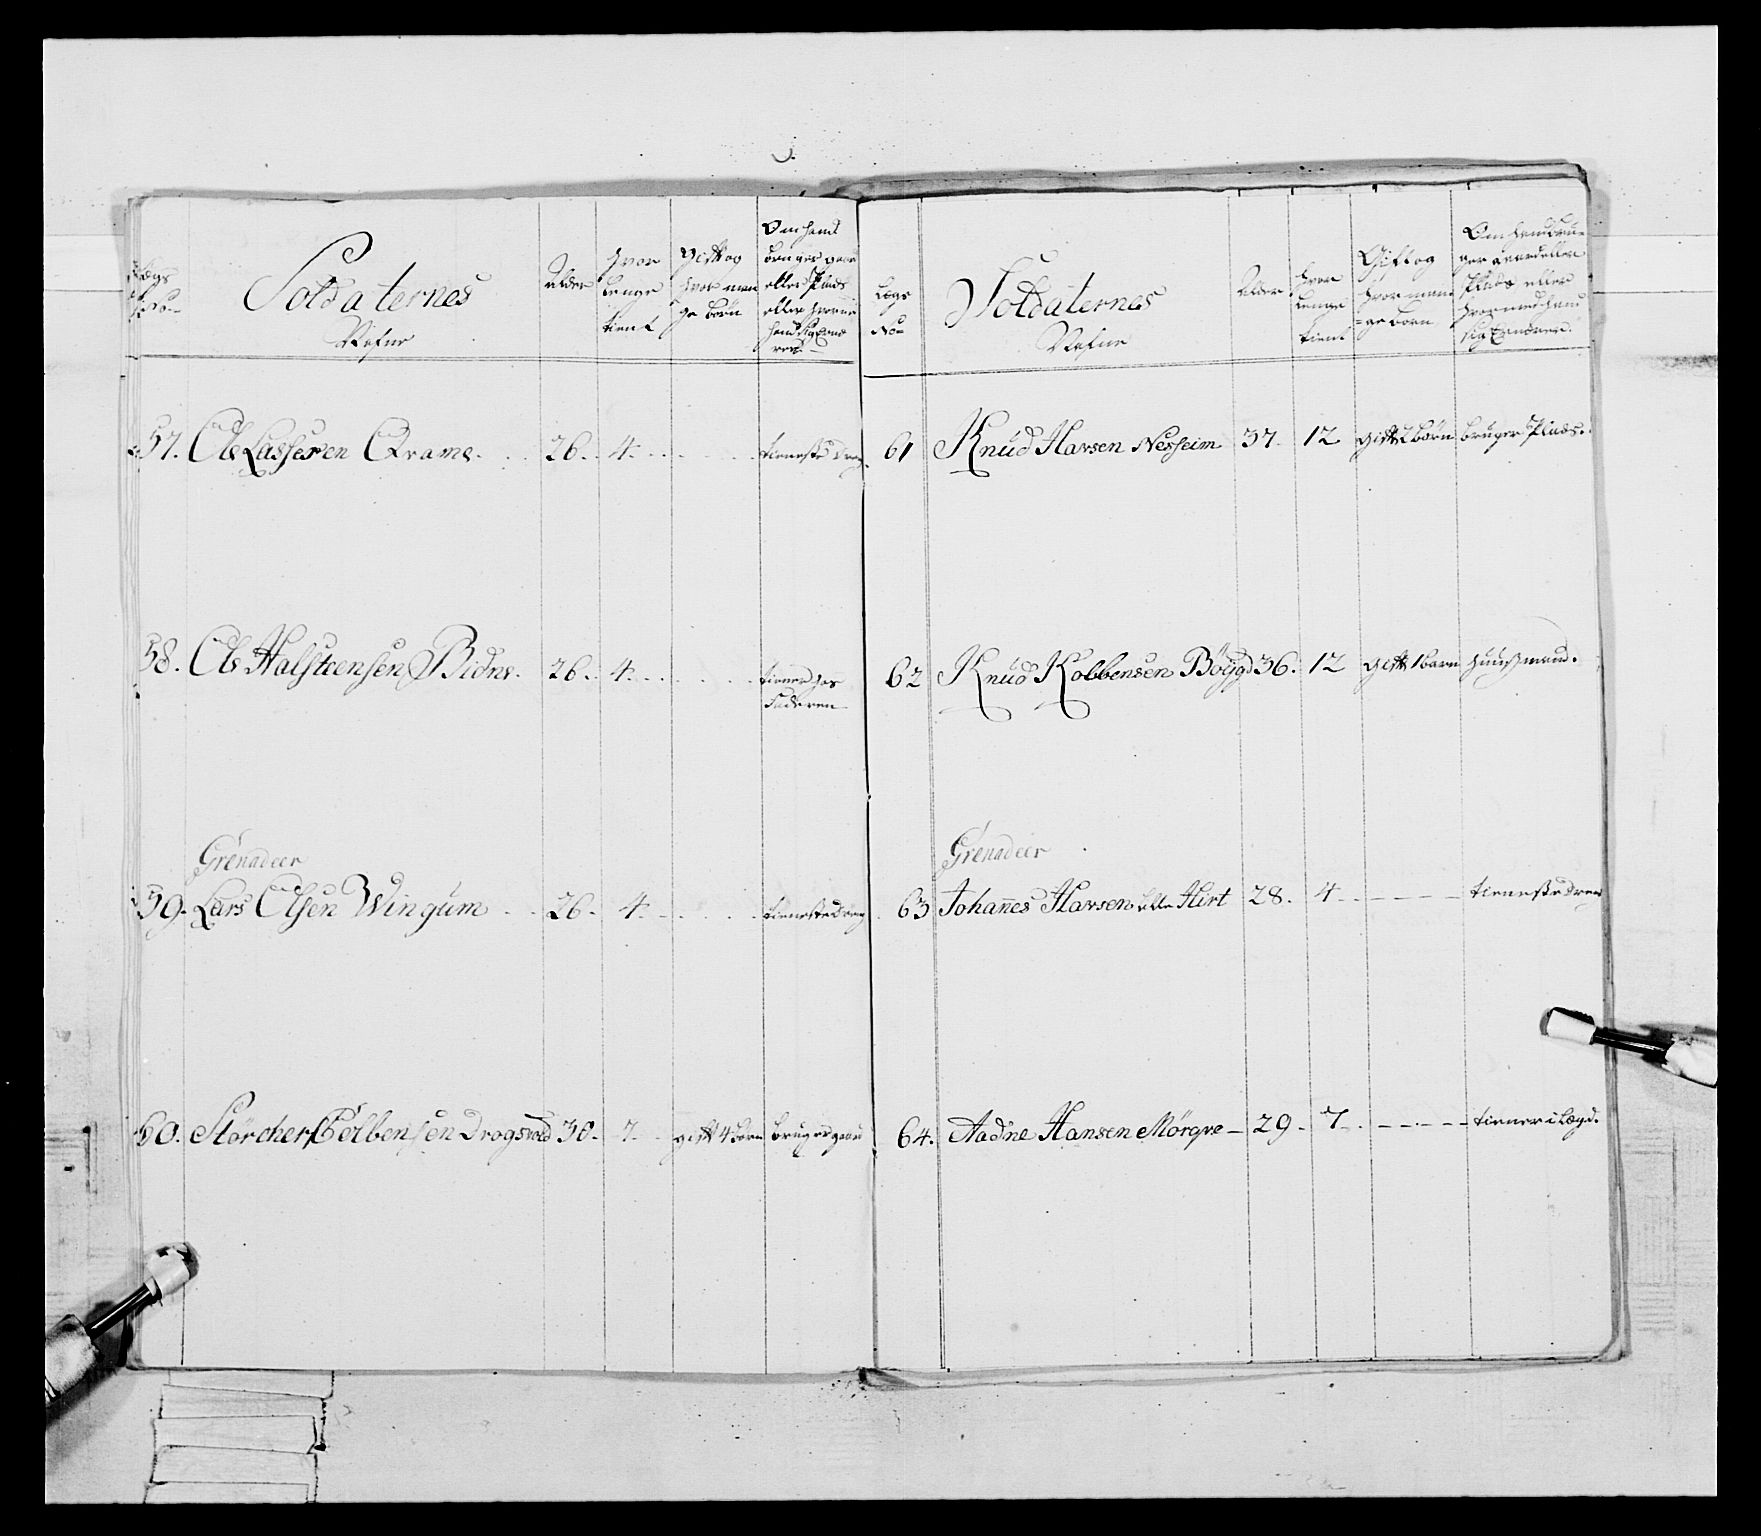 Lægs No
Soldaternes Nafne
Alder
hvor lenge tient
gift og hvor man ge børn
Om hand bruger gaar eller Plads eller hvormed hand sig Ernærer
57. Ole Lassesen Qvame. 26. 4. tieneste dreng
58. Ole Halsteensen Bidne. 26. 4. tiener hos Faderen
Grenadeer
59. Lars Olsen Wingum 26. 4. tieneste dreng
60. Storcher Colbensen Dragsvold 30. 7. gift 4 børn bruger gaard
Lægs No
Soldaternes Nafne
Alder
hvor lenge tient
Gift og hvor man =ge børn
Om hand bru= ger gaard eller Plads eller hvormed hand sig Ernærer.
61 Knud Harsen Nesheim 37. 12 gift 2 børn bruger Plads.
62 Knud Kolbensen Böygd 36. 12 gift 1 barn huusmand.
Grenadeer
63 Johan̄es Harsen lille Hirt 28. 4 tieneste dreng
64. Aadne Hansen Mørqve 29 7 tiener i Lægd.